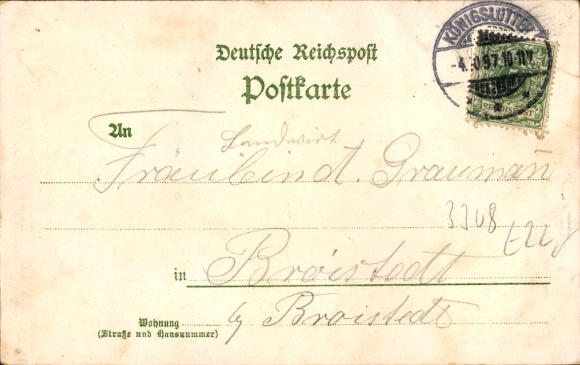 KÖNIGSLUTTER
-4.10.97.10-11V.
Deutsche Reichspost
Postkarte
An
Landwirt
Fräulein d. Graumann
3348
in Broistedt
Wohnung
(Straße und Hausnummer)
by Broistedt